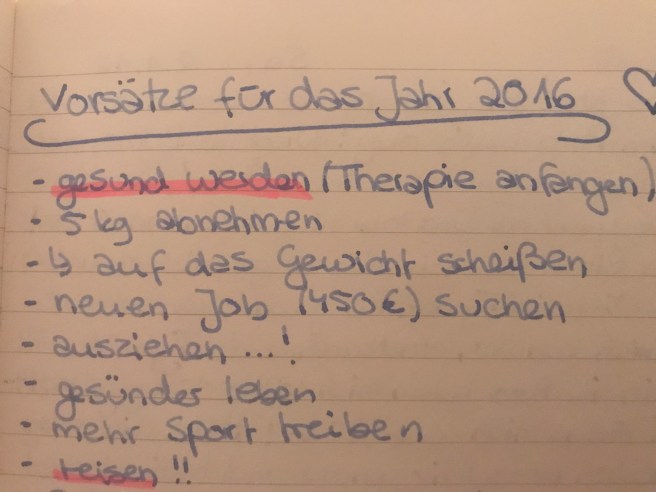 Vorsätze für das Jahr 2016
- gesund werden (Therapie anfangen)
- 5 kg abnehmen
- ↳ auf das Gewicht scheißen
- neuen Job (450€) suchen
- ausziehen ...!
- gesünder leben
- mehr Sport treiben
- reisen !!